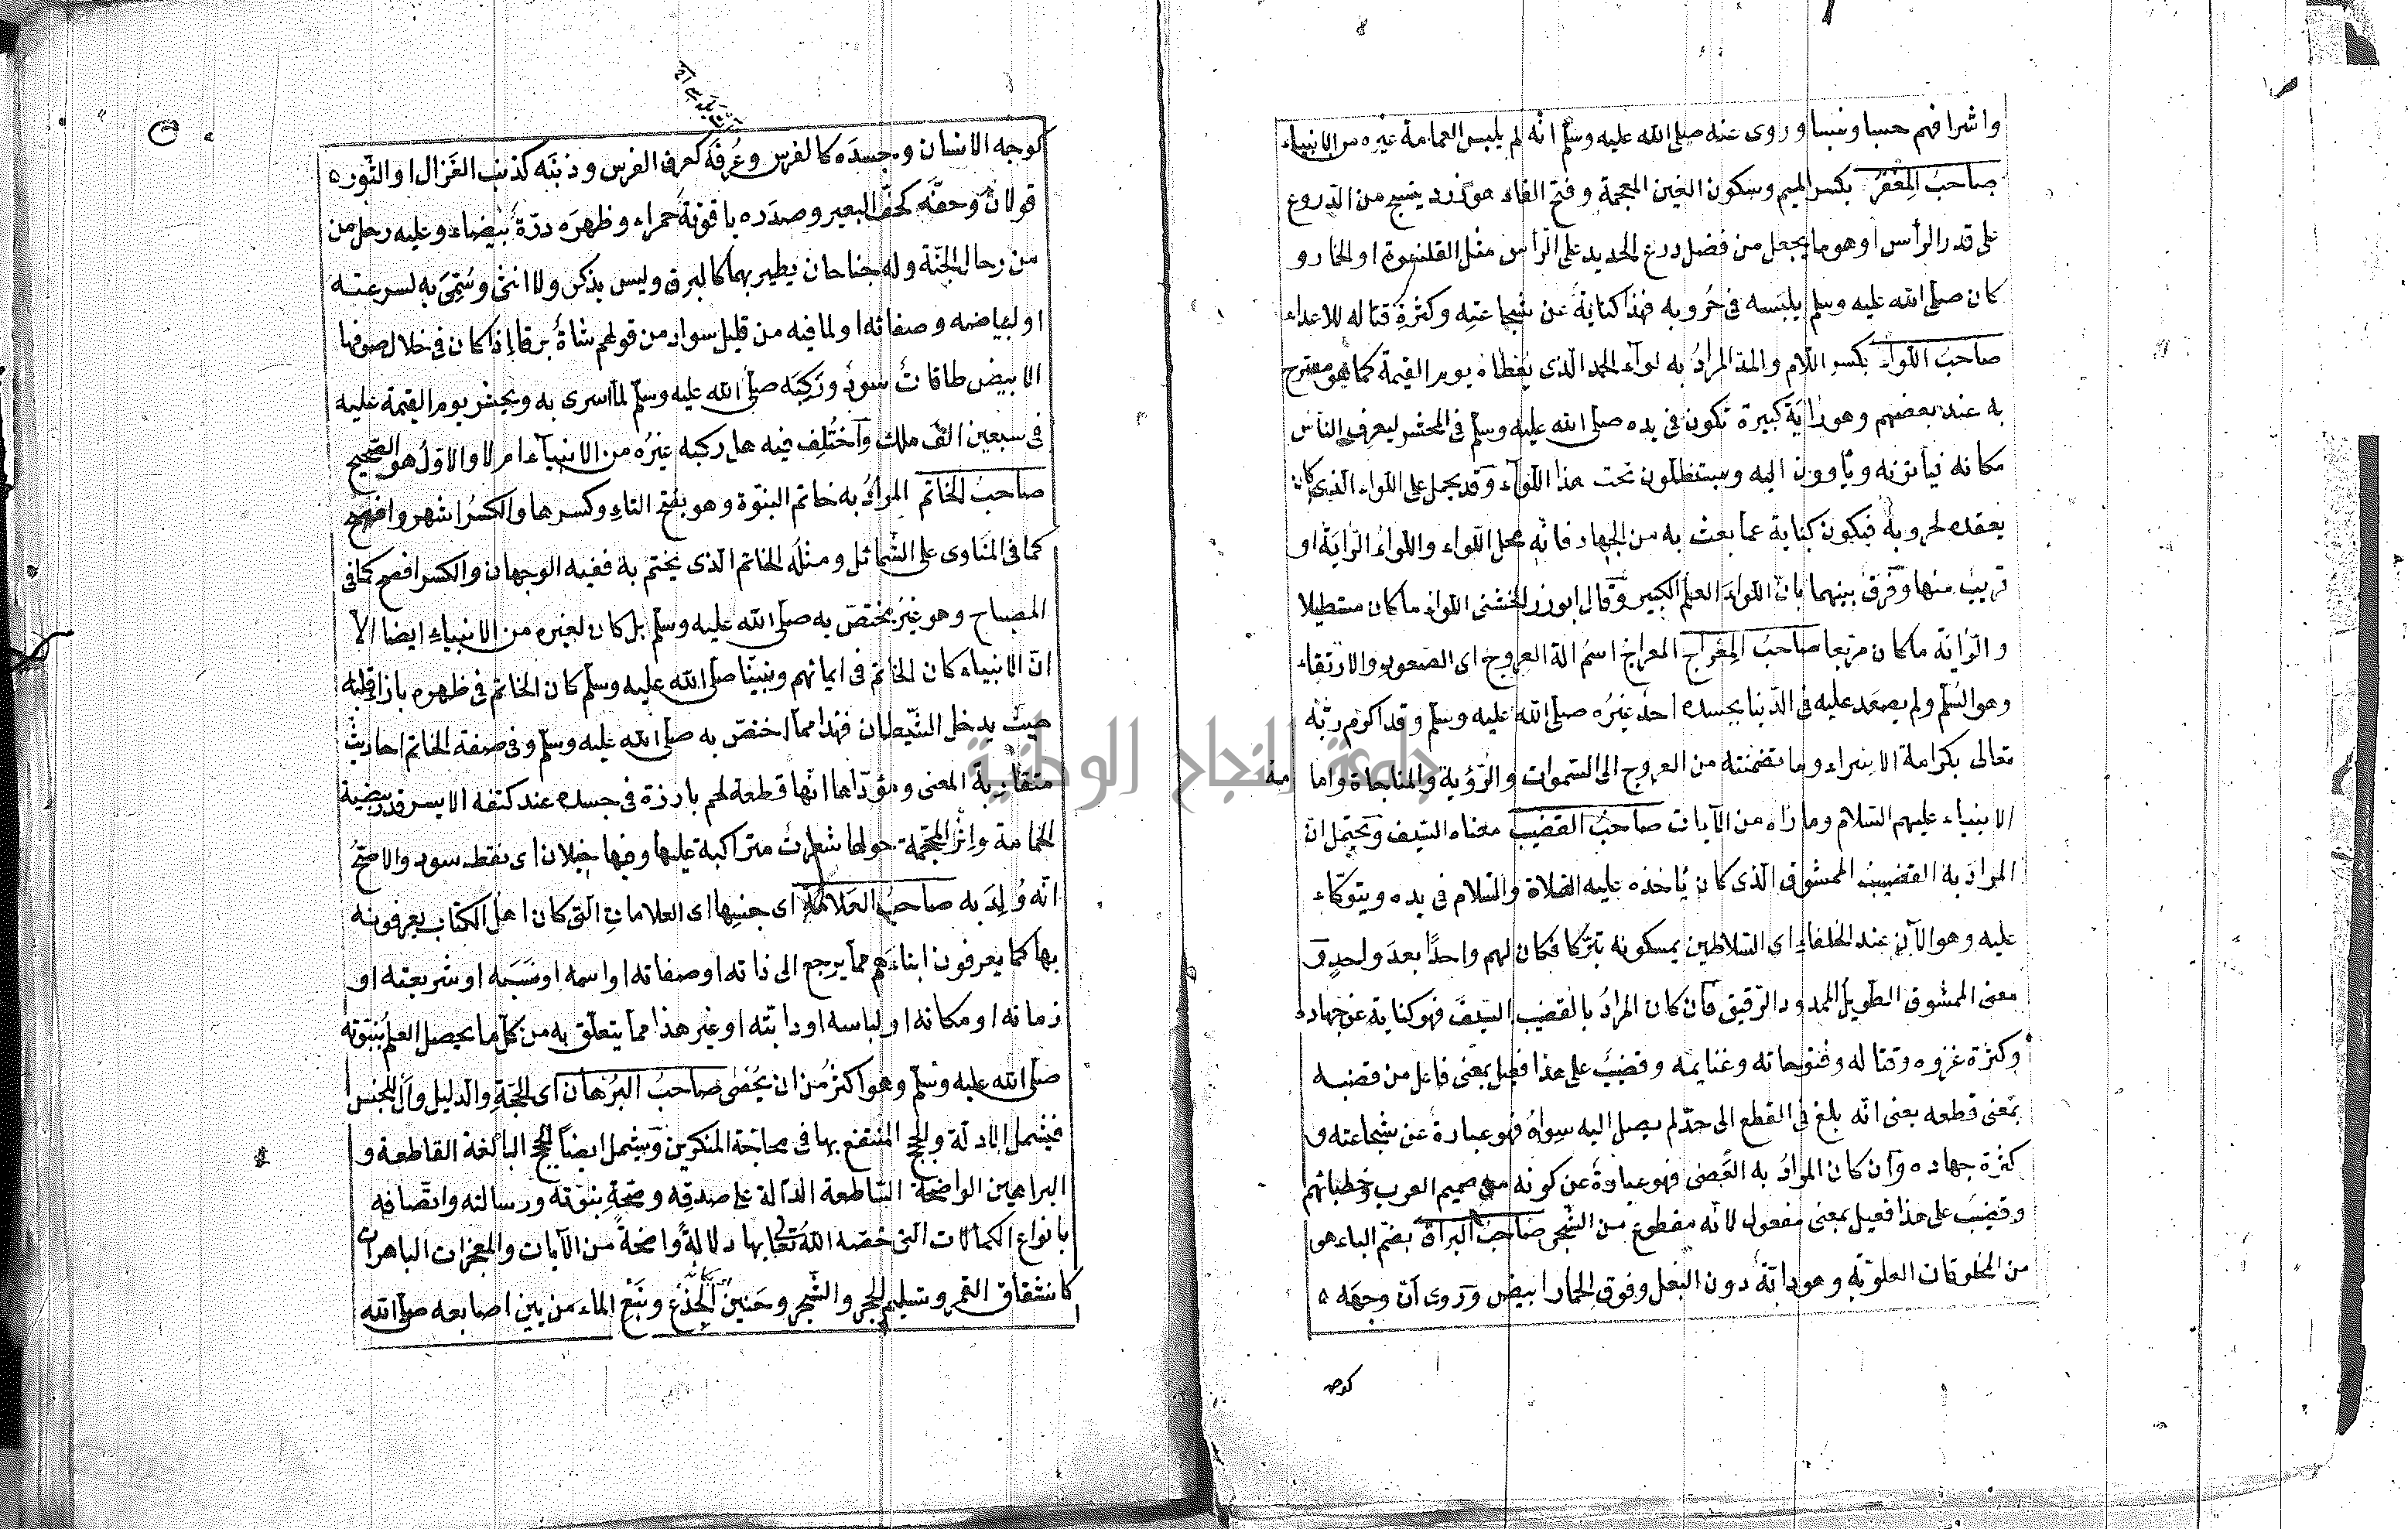 واشرافهم حسبا ونسبا وروى عنه صلى الله عليه وسلم انه لم يلبس العمامة غيره من الانبياء
صاحبُ المِغْفَرُ بكسر الميم وسكون الغين المعجمة وفتح الفاء هو زرد ينسج من الدروع
على قدر الرأس او هو ما يجعل من فضل درع الحديد على الرأس مثل القلنسوة او الخمار و
كان صلى الله عليه وسلم يلبسه فى حُروبه فهذا كناية عن شجاعتِه وكثرةِ قتاله للاعداء
صاحبُ اللواء بكسر اللام والمد المرادُ به لوآء الحمد الذى يُعْطاه يوم القيمة كما هو مصرح
به عند بعضهم وهو راية كبيرة تكون فى يده صلى الله عليه وسلم فى المحشر ليعرف الناس
مكانه فيأتونه ويأوون اليه ويستظلون تحت هذا اللوآء وقد يحمل على اللواء الذى كان
يعقده لحروبه فيكون كناية عما بعث به من الجهاد فانه محل اللواء واللواءُ الرّايَة او
قريب منها وفُرق بينهما بان اللواءَ العلم الكبير وقال ابوذر الخشنى اللواء ما كان مستطيلا
والرّاية ما كان مربعا صاحبُ المِعْراج المعراج اسمُ الة العروج اى الصعود والارتقاء
وهو السُلّم ولم يصعد عليه فى الدّنيا بجسده احدٌ غيرُه صلى الله عليه وسلم وقد اكرم ربّه
تعالى بكرامة الاسراء وما تضمنته من العروج الى السموات والرّؤية والمناجاة واما مة
الانبياء عليهم السلام وما رآه من الآيات صاحبُ القضيب معناه السّيف ويحتمل انّ
المرادَ به القضيب الممشوق الّذى كان يأخذه عليه الصلاة والسّلام فى يده ويتوكّاء
عليه وهو الآن عند الخلفاءِ اى السّلاطين يمسكونه تبرّكا فكان لهم واحدًا بعدَ واحدٍ و
معنى الممشوق الطّويل الممدود الرّقيق فان كان المرادُ بالقضيب السّيفَ فهو كناية عن جهاده
وكثرة غزوه وقتاله وفتوحاته وغنايمه وقضيبٌ على هذا فعيل بمعنى فاعل من قضبه
بمعنى قطعه يعنى انّه بلغ فى القطع الى حدّ لم يصل اليه سِواهُ فهو عبارةٌ عن شجاعته و
كثرة جهاده وان كان المرادُ به العَصَى فهو عبارةٌ عن كونه من صميم العرب وخطبائهم
وقضيبٌ على هذا فعيل بمعنى مفعول لانّه مقطوع من الشّجر صاحبُ البُراق بضمّ الباء هو
من المخلوقات العلويّة وهو دابّة دون البغل وفوق الحمار ابيض ورُوى انّ وجهَه
كوجه
كوجه الانسان وجسدَه كالفرس وعُرفَه كعرف الفرس وذنبَه كذنب الغَزال او الثّور
قولان وخفّه كخفّ البعير وصدَره ياقوتةٌ حمراء وظهرَه درّةٌ بيضاء وعليه رحل من
من رحال الجنّة وله جناحان يطير بهما كالبرق وليس بذكر ولا انثى وسُمّى به لسرعته
او لبياضه وصفائه او لما فيه من قليل سواد من قولهم شاةٌ برقا اذا كان فى خلال صوفها
الابيض طاقاتٌ سودٌ ورَكِبَه صلى الله عليه وسلم لما اسرى به ويحشر يوم القيمة عليه
فى سبعين الف ملك واختُلِف فيه هل ركبه غيرُه من الانبيآء ام لا والاوّلُ هو الصّحيح
صاحبُ الخاتم المرادُ به خاتم النبوّة وهو بفتح التاءِ وكسرها والكسرُ اشهر وافصح
كما فى المناوى على الشّمائل ومثلُه الخاتم الذى يختم به ففيه الوجهان والكسر افصح كما فى
المصباح وهو غيرُ مختصّ به صلى الله عليه وسلم بل كان لغيره من الانبياءِ ايضا الاّ
انّ الانبياء كان الخاتم فى ايمانهم ونبيّنا صلى الله عليه وسلم كان الخاتم فى ظهره بازاء قلبه
حيث يدخل الشّيطان فهذا ممّا اختصّ به صلى الله عليه وسلم وفى صفة الخاتم احاديث
متقاربة المعنى ومؤدّاها انّها قطعة لحم بارزة فى جسده عند كتفه الايسر قدر بيضة
الحمامة واثر المحجمة حولها شعرات متراكبة عليها وفيها خيلان اى نقط سود والاصحّ
انّه وُلِدَ به صاحبُ العَلامَة اى جنسِها اى العلاماتِ الّتى كان اهل الكتاب يعرفونه
بها كما يعرفون ابناءَهم مما يرجع الى ذاته او صفاته او اسمه او نَسَبه او شريعته او
زمانه او مكانه او لباسه او دابّته او غير هذا مما يتعلّق به من كلّ ما يحصل العلم بنبوّته
صلى الله عليه وسلم وهو اكثرُ من ان يُحْصَى صاحبُ البُرْهان اى الحجّةِ والدليل وأل للجنس
فيشمل الادلة والحجج المنتفع بها فى محاجّة المنكرين ويشمل ايضاً الحجج البالغة القاطعة و
البراهين الواضحة السّاطعة الدّالة على صدقِه وصحّةِ نبوّته ورسالته واتّصافه
بانواع الكمالات الّتى خصّه اللهُ تعالى بها دلالةً واضحةً من الآيات والمعجزات الباهرات
كانشقاق القمر وتسليم الحجر والشّجر وحَنينِ الجِذْع ونَبْعِ الماء من بين اصابعه صلى الله
جامعة النجاح الوطنية